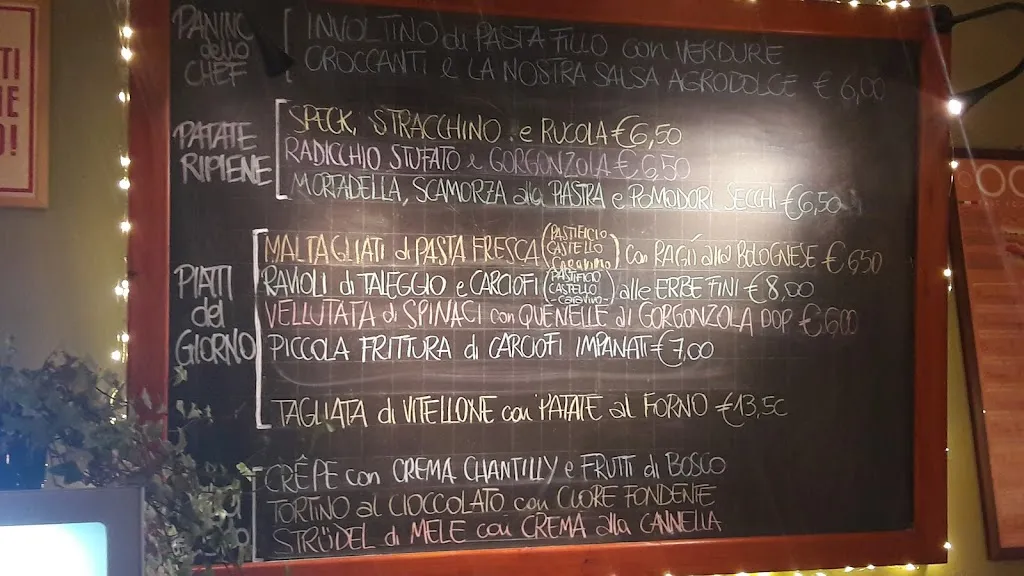 PANINO dello CHEF
INVOLTINO di PASTA FILLO con VERDURE
CROCCANTI e LA NOSTRA SALSA AGRODOLCE € 6,00
PATATE RIPIENE
SPECK, STRACCHINO e RUCOLA € 6,50
RADICCHIO STUFATO e GORGONZOLA € 6,50
MORTADELLA, SCAMORZA alla PIASTRA e POMODORI SECCHI € 6,50
PIATTI del GIORNO
MALTAGLIATI di PASTA FRESCA (PASTIFICIO CASTELLO) con RAGÙ alla BOLOGNESE € 6,50
RAVIOLI di TALEGGIO e CARCIOFI (PASTIFICIO CASTELLO) alle ERBE FINI € 8,00
VELLUTATA di SPINACI con QUENELLE al GORGONZOLA DOP € 6,00
PICCOLA FRITTURA di CARCIOFI IMPANATI € 7,00
TAGLIATA di VITELLONE con PATATE al FORNO € 13,50
CRÊPE con CREMA CHANTILLY e FRUTTI di BOSCO
TORTINO al CIOCCOLATO con CUORE FONDENTE
STRÜDEL di MELE con CREMA alla CANNELLA